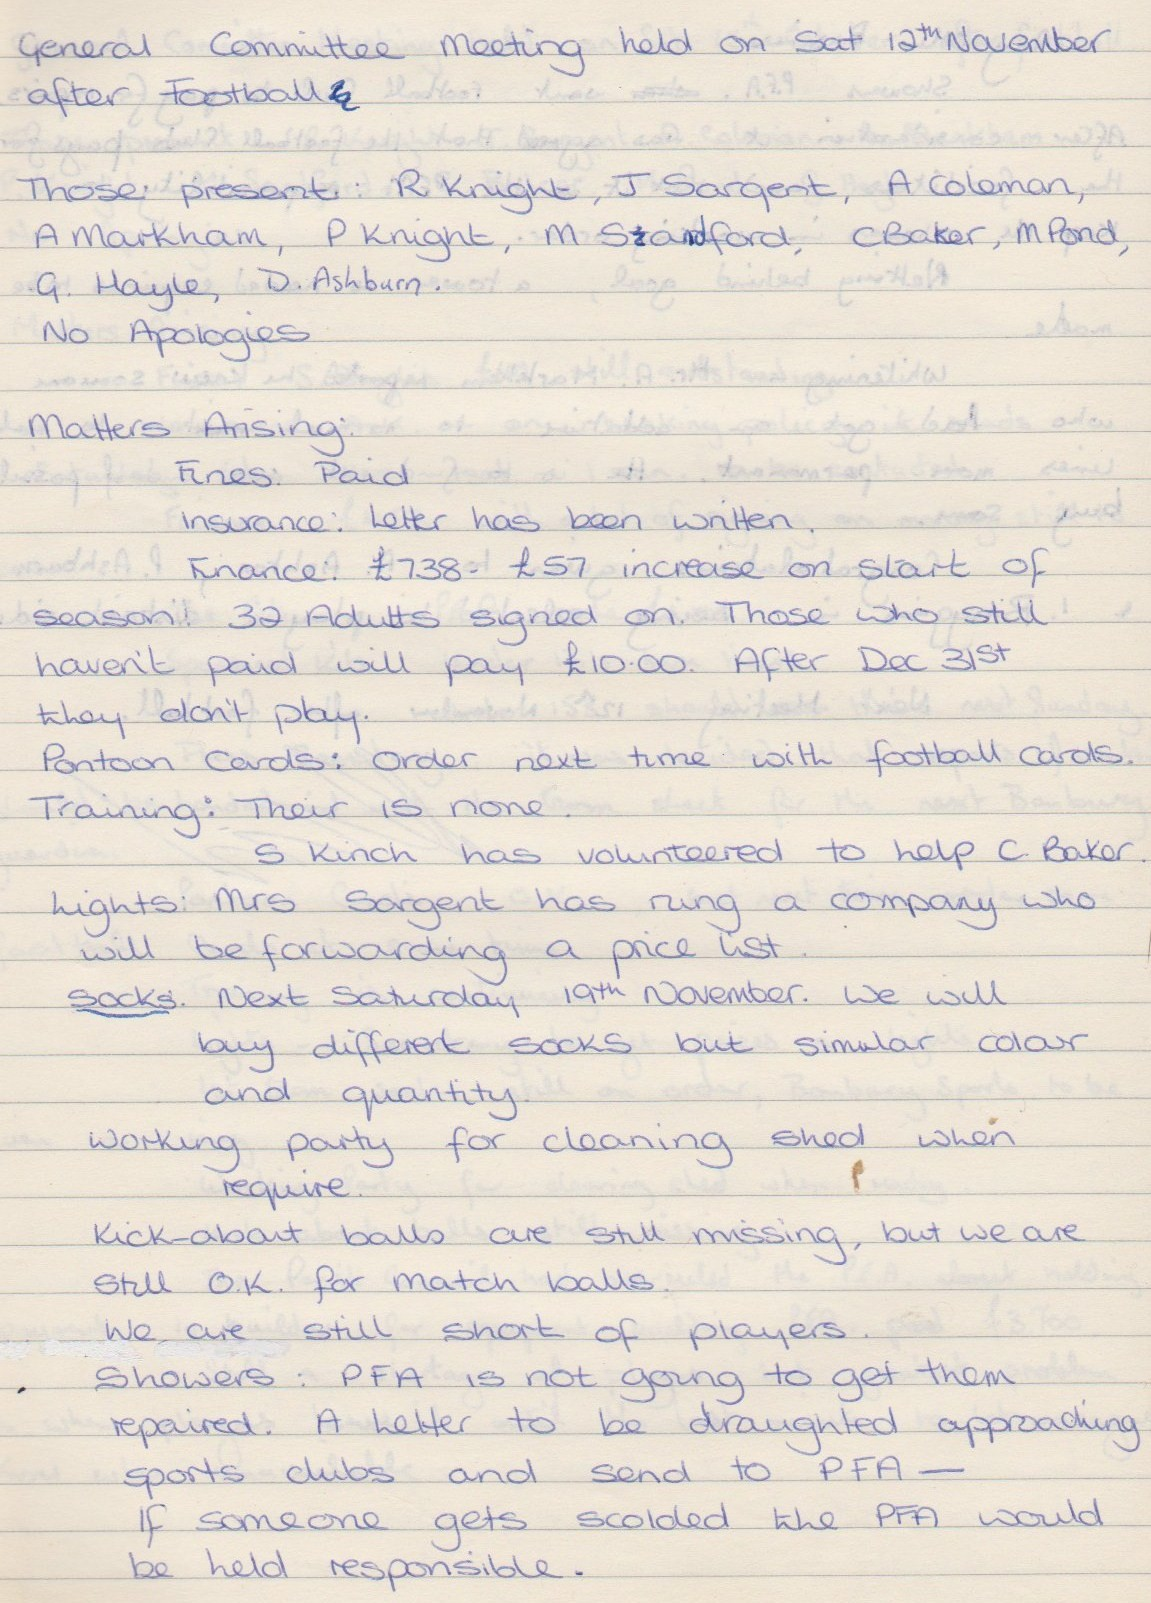 General Committee Meeting held on Sat 12th November
after Football
Those present: R Knight, J Sargent, A Coleman,
A Markham, P Knight, M Standford, C Baker, M Pond,
G. Hayle, D. Ashburn.
No Apologies
Matters Arising:
Fines: Paid
Insurance: Letter has been written.
Finance: £738 - £57 increase on start of
season! 32 Adults signed on. Those who still
haven't paid will pay £10.00. After Dec 31st
they don't play.
Pontoon Cards: Order next time with football cards.
Training: Their is none.
S Kinch has volunteered to help C. Baker.
Lights: Mrs Sargent has rung a company who
will be forwarding a price list.
Socks. Next Saturday 19th November. We will
buy different socks but simular colour
and quantity.
Working party for cleaning shed when
require.
Kick-about balls are still missing, but we are
still O.K. for match balls.
We are still short of players.
Showers: PFA is not going to get them
repaired. A Letter to be draughted approaching
sports clubs and send to PFA —
If someone gets scolded the PFA would
be held responsible.